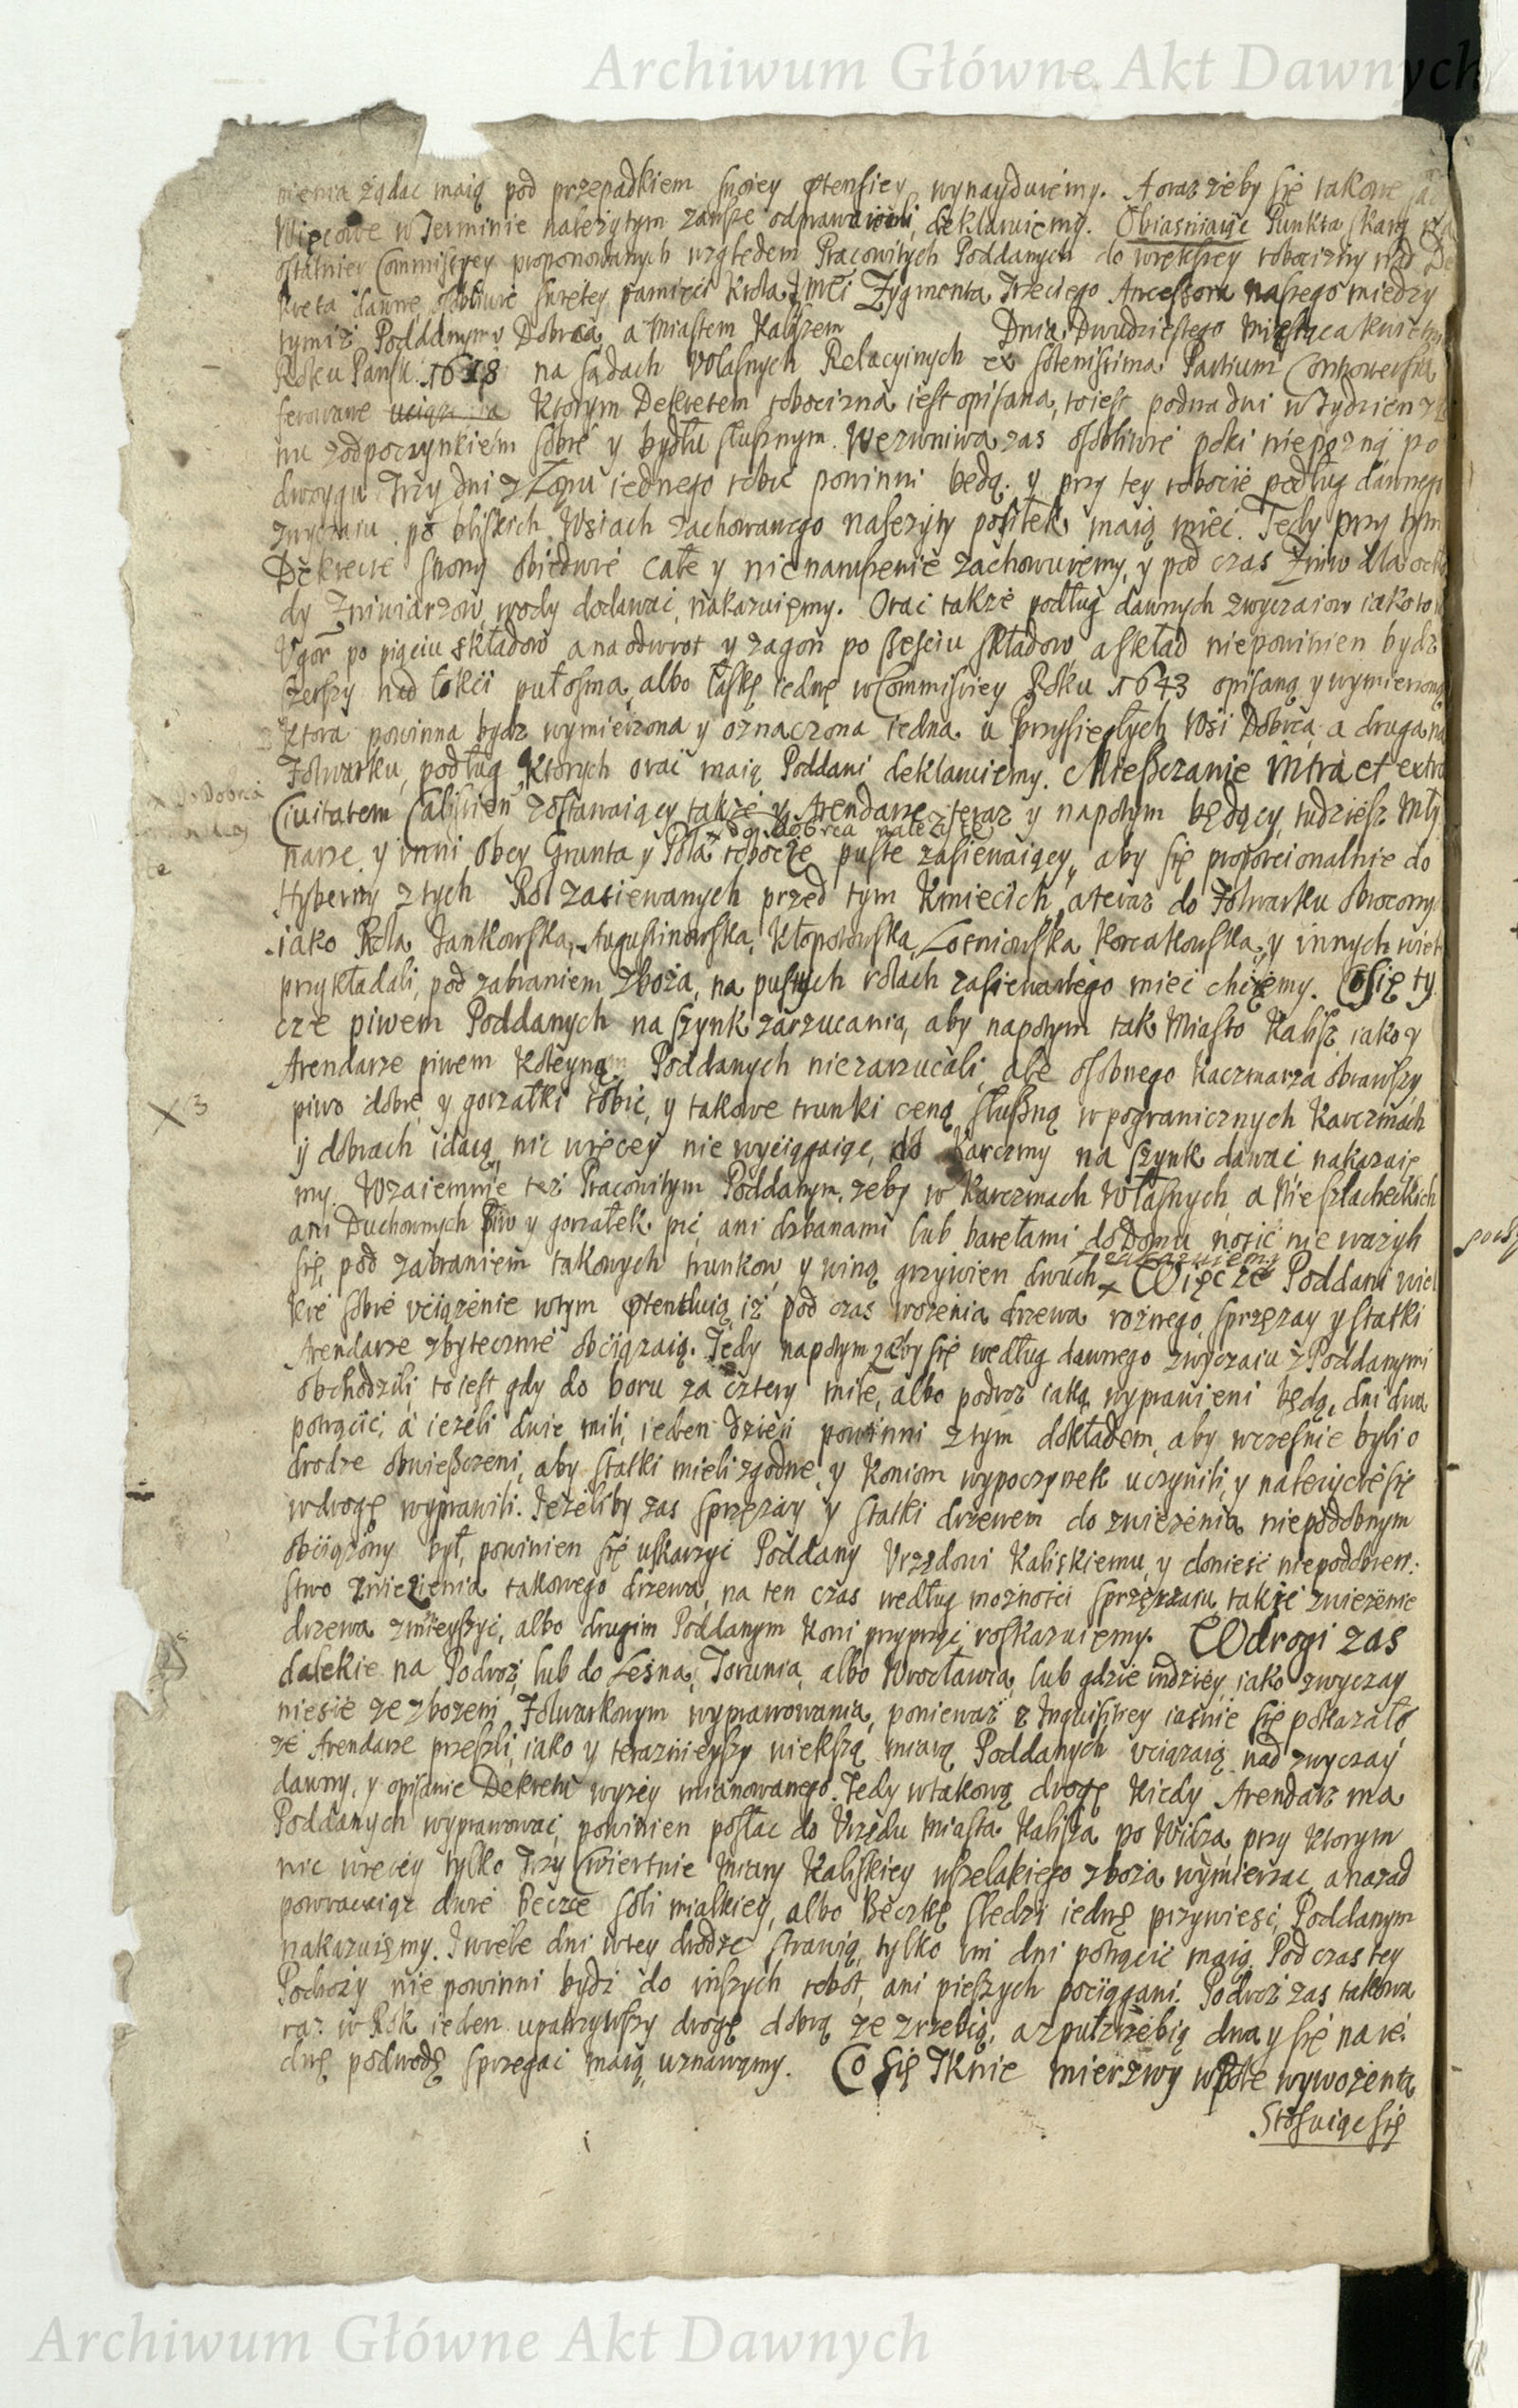 Archiwum Główne Akt Dawnych
nienia żądac maią pod przepadkiem swoiey ptensiey wynayduiemy. A oraz żeby się takowe
Wiecowe w Terminie należytym zawsze odprawowali, deklaruiemy. Obiasniaiąc Punkta skarg
ostatniey Commissyey proponowanych względem Pracowitych Poddanych do większey robocizny nad De
kreta dawne osobliwie swiętey pamięci Krola Jmci Zygmonta Trzeciego Ancessora naszego między
tymiż Poddanymi Dobrca, a Miastem Kaliszem Dnia Dwudziestego Miesiąca Kwietnia
Roku Pansk. 1618 na sądach Własnych Relacyinych ex solenissima Partium Controversia
ferowane Ktorym Dekretem robocizna iest opisana, to iest po dwa dni w Tydzien z
nu z odpoczynkiem sobie y bydłu słusznym. We zniwa zas osobliwie poki nie pożną po
dwoygu Trzy dni z Łanu iednego robic powinni będą. y przy tey robocie podług dawnego
zwyczaiu po bliskich Wsiach zachowanego nalezyty posiłek maią miec. Tedy przy tym
Dekrecie strony obiedwie całe y nienaruszenie zachowuiemy, y pod czas Zniw dla ochło
dy Zniwiarzow, wody dodawac, nakazuiemy. Orac także podług dawnych zwyczaiow iako to
Ugor po pięciu składow a na odwrot y zagon po szesciu składow, a skład niepowinien bydz
szerszy nad łokci pułosma, albo laskę iednę w Commissiey Roku 1643 opisaną y wymierzoną
Ktora powinna bydz wymierzona y oznaczona iedna u Przysięgłych Wsi Dobrca a druga na
Folwarku, podług Ktorych orac maią Poddani deklaruiemy. Mieszczanie intra et extra
Civitatem Calisien zostawaiący także y Arendarze teraz y napotym będący, tudziesz Mły
+ do Dobrca należące
narze y inni obcy Grunta y Pola robocze puste zasiewaiący, aby się proporcionalnie do
Hyberny z tych Rol zasiewanych przed tym Kmiecich, a teraz do Folwarku obrocony
iako Rola Jankowska, Augustinowska, Kłopotowska, Losniowska Korcakowska, y innych wiele
przykładali, pod zabraniem zboża, na pustych rolach zasiewanego miec chcemy. Co się ty
cze piwem Poddanych na szynk zarzucania, aby napotym tak Miasto Kalisz iako y
Arendarze piwem Koleyną Poddanych niezarzucali, ale osobnego Kaczmarza obrawszy
X 3
piwo dobre y gorzałki robić, y takowe trunki ceną słuszną w pogranicznych Karczmach
y dobrach idącą, nic więcey nie wyciągaiąc, do Karczmy na szynk dawac nakazuię
my. Wzaiemnie też Pracowitym Poddanym, zeby w Karczmach Własnych, a Nieszlacheckich
ani Duchownych Piw y gorzałek pić, ani dzbanami lub barełami do Domu nosić nie ważyli
+ zakazuiemy
się, pod zabraniem takowych trunkow, y winą grzywien dwuch + Więc że Poddani wiel
kie sobie uciążenie w tym ptenduią, iż pod czas wożenia drzewa rożnego, sprzęzay y statki
Arendarze zbytecznie obciązaią. Tedy napotym zeby się według dawnego zwyczaiu z Poddanymi
obchodzili, to iest gdy do boru za cztery mile, albo podroż iaką wyprawieni będą, dni dwa
potrącić, a ieżeli dwie mili, ieden Dzień powinni z tym dokładem, aby wczesnie byli o
drodze obwieszczeni, aby statki mieli zgodne, y Koniom wypoczynek uczynili, y należycie się
w drogę wyprawili. Jeżeliby zas sprzężay y statki drzewem do zwiezenia niepodobnym
obciążony był, powinien się uskarzyć Poddany Urzędowi Kaliskiemu, y donieść niepodobień:
stwo zwiezienia takowego drzewa, na ten czas według możności sprzężaiu, takie zwiezienie
drzewa zmieyszyć, albo drugim Poddanym Koni przyprząc, roskazuiemy. W drogi zas
dalekie na Podroż, lub do Leśna, Torunia, albo Wrocławia, lub gdzie indziey, iako zwyczay
niesie ze zbożem Folwarkowym wyprawowania, ponieważ z Inquisitiey iasnie się pokazało
że Arendarze przeszli, iako y teraznieyszy większą miarą Poddanych uciązaią nad zwyczay
dawny, y opisanie Dekretu wyżey mianowanego. Tedy w takową drogę Kiedy Arendarz ma
Poddanych wyprawować, powinien posłac do Urzędu Miasta Kalisza po Widza, przy Ktorym
nic więcey tylko Trzy Cwiertnie Miary Kaliskiey wszelakiego zboża wymierzac, a nazad
powracaiąc dwie Beczce soli miałkiey, albo Beczkę sledzi iednę przywiesc, Poddanym
nakazuiemy. I wiele dni w tey drodze strawią, tylko dni potrącić maią. Pod czas tey
Podroży nie powinni bydź do inszych robot, ani pieszych pociągani. Podroż zas takowa
raz w Rok ieden upatrzywszy drogę dobrą ze zrzebią, a z pułzrzebią dwa y się na ie:
dnę podwodę sprzęgac maią, uznawamy. Co się Tknie mierzwy w Pole wywożenia
Stosuiąc się
Archiwum Główne Akt Dawnych